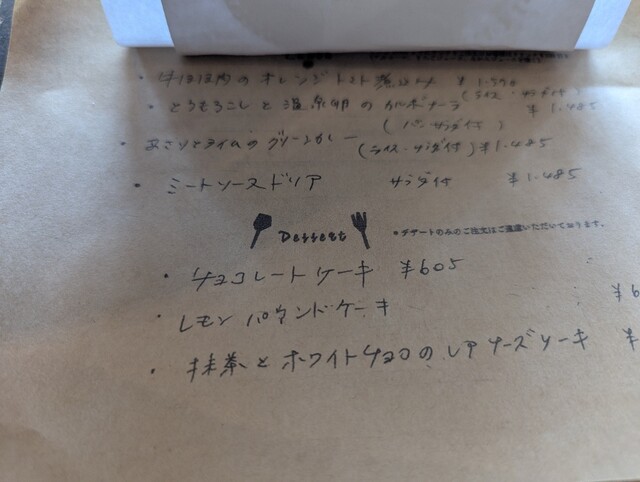 ・牛ほほ肉のオレンジトマト煮込み ¥1.
(ライス・サラダ付)
・とうもろこしと温泉卵のカルボナーラ ¥1.485
(パン・サラダ付)
・あさりとライムのグリーンカレー (ライス・サラダ付) ¥1.485
・ミートソースドリア サラダ付 ¥1.485
Dessert ●デザートのみのご注文はご遠慮いただいております。
・チョコレートケーキ ¥605
・レモンパウンドケーキ ¥6
・抹茶とホワイトチョコのレアチーズケーキ ¥